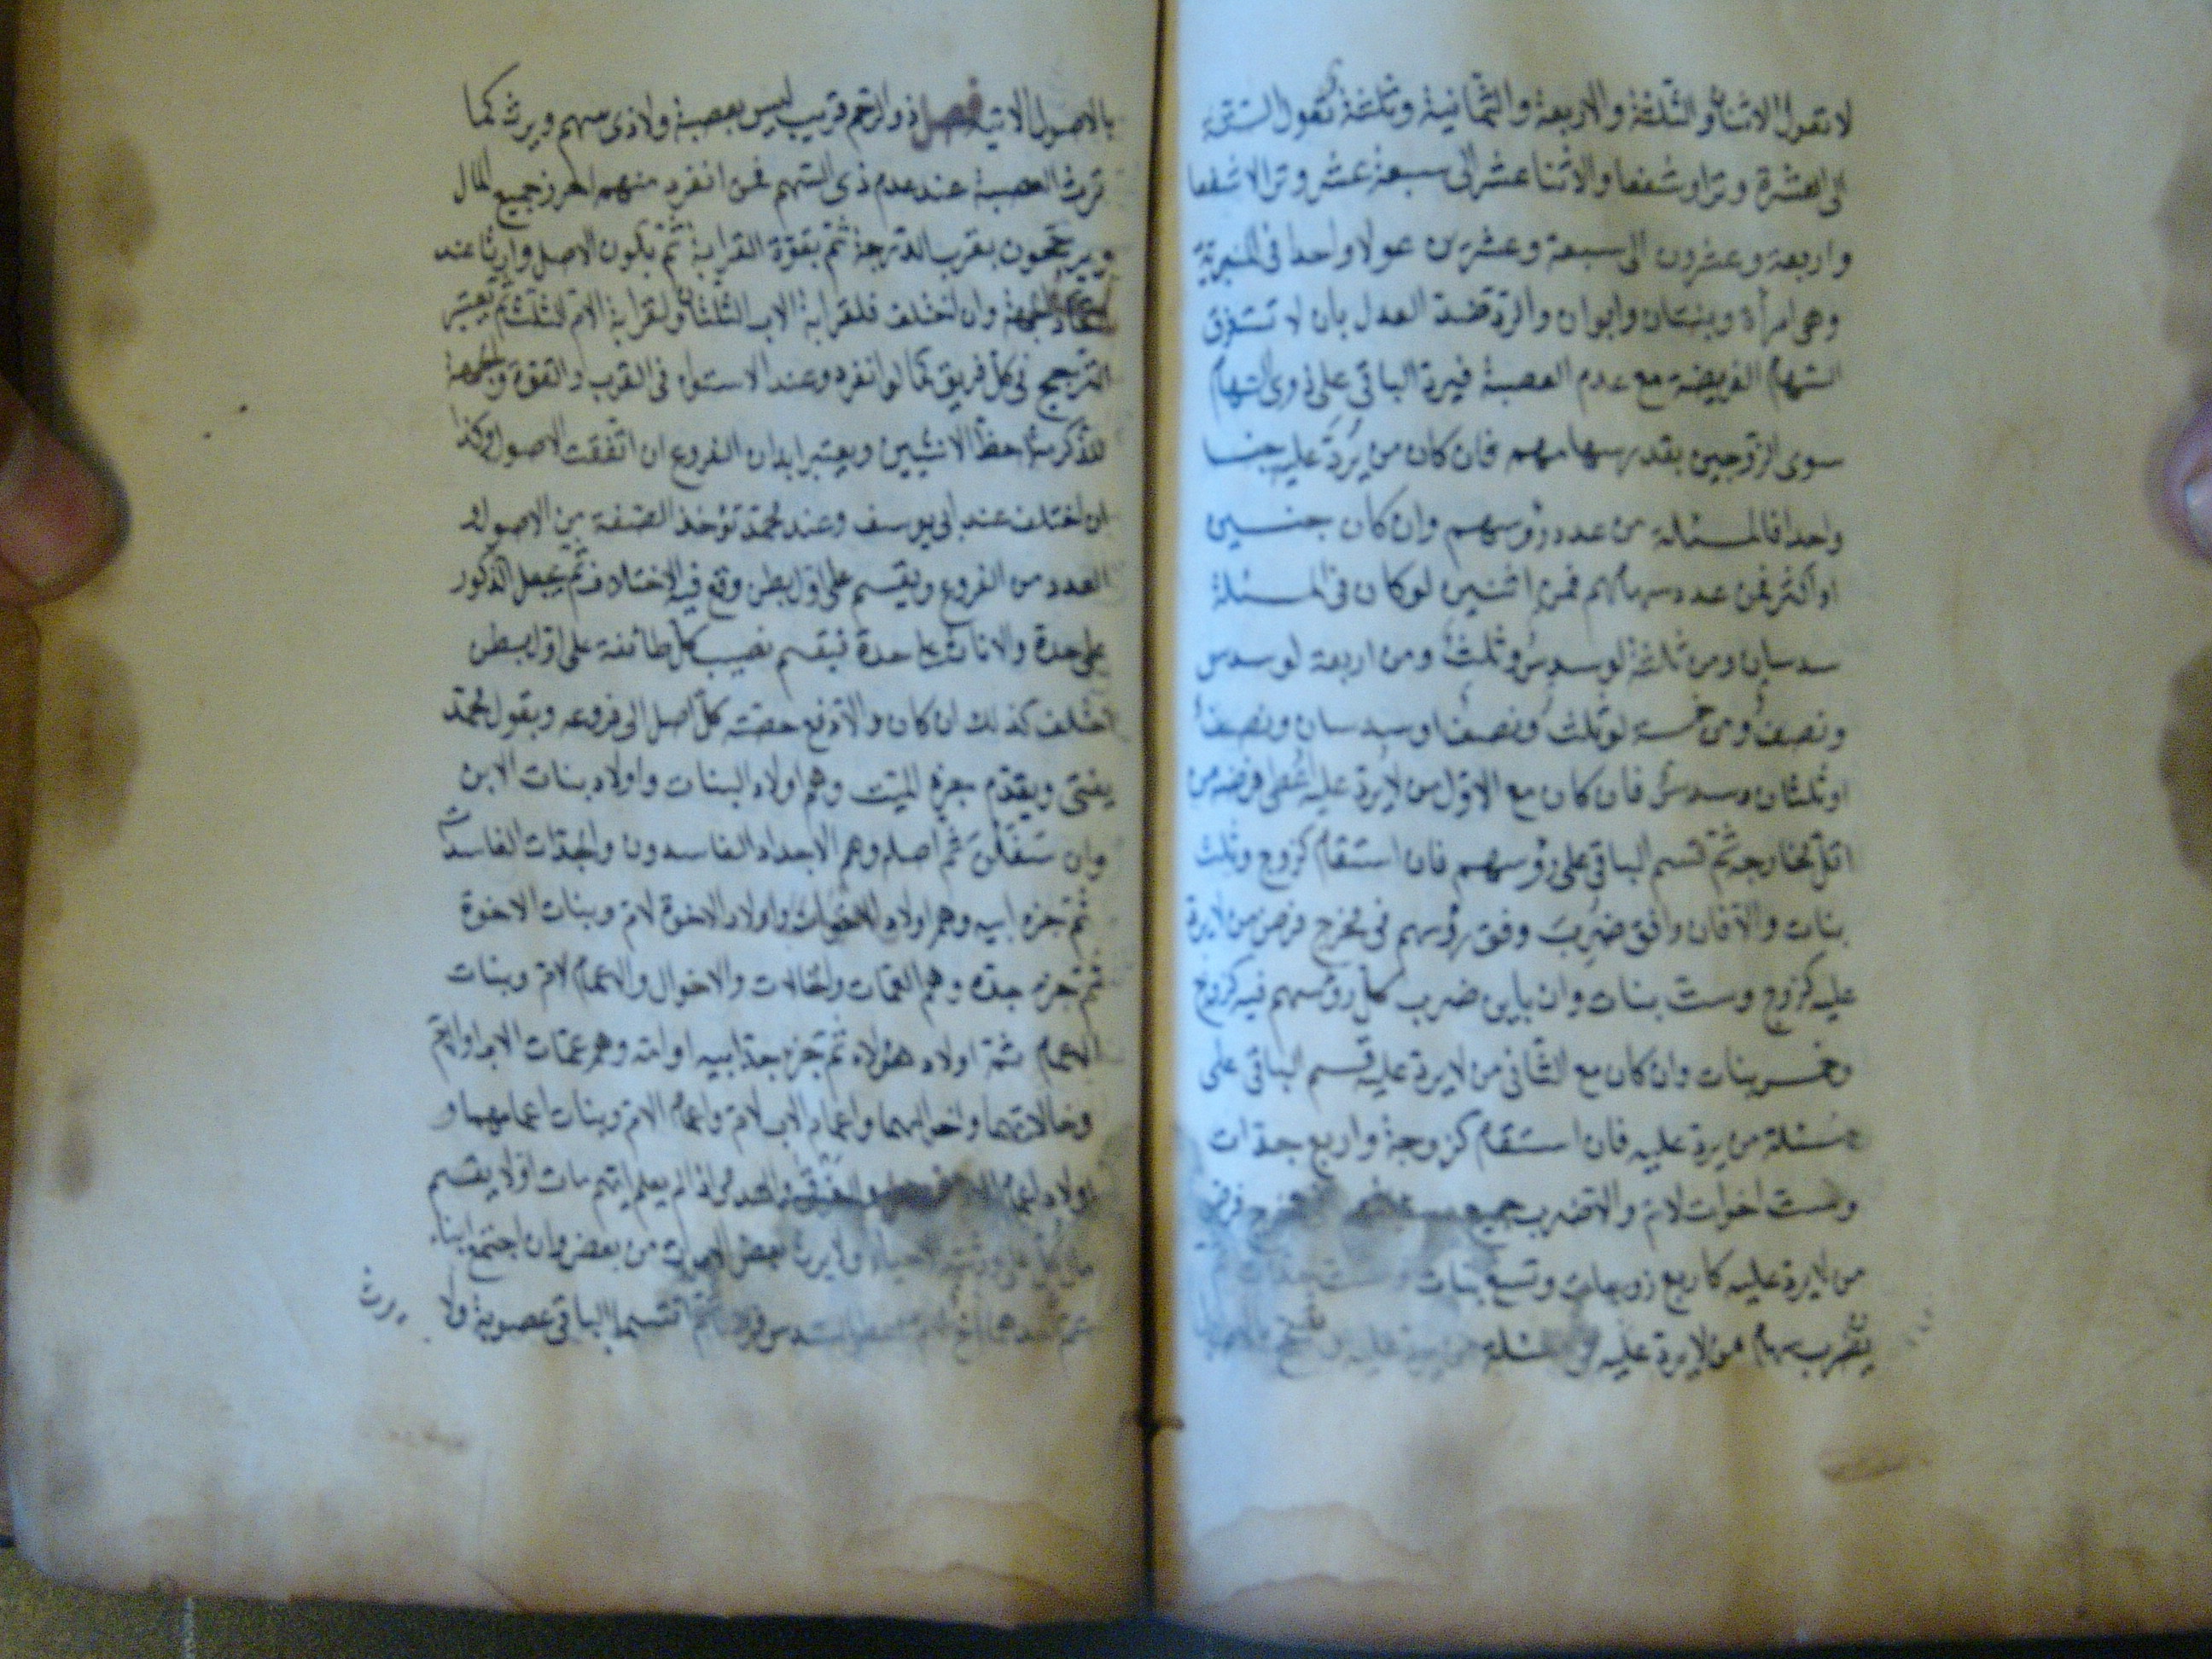 لا تعول الاثنان والثلثة والاربعة والثمانية وثلثة تعول الستة
الى العشرة وترا وشفعا والاثنا عشر الى سبعة عشر وترا لا شفعا
واربعة وعشرون الى سبعة وعشرين عولا واحدا في المنبرية
وهي امرأة وبنتان وابوان والرد ضد العول بان لا تستغرق
السهام الفريضة مع عدم العصبة فيرد الباقي على ذوى السهام
سوى الزوجين بقدر سهامهم فان كان من يرد عليه جنسا
واحدا فالمسئلة من عدد رؤسهم وان كان جنسين
او اكثر فمن عدد سهامهم فمن اثنين لو كان في المسئلة
سدسان ومن ثلثة لو سدس وثلث ومن اربعة لو سدس
ونصف ومن خمسة لو ثلث ونصف او سدسان ونصف
او ثلثان وسدس فان كان مع الاول من لا يرد عليه اعطى فرضه من
اقل مخارجه ثم قسم الباقي على رؤسهم فان استقام كزوج وثلث
بنات والا فان وافق ضرب وفق رؤسهم في مخرج فرض من لا يرد
عليه كزوج وست بنات وان باين ضرب كل رؤسهم فيه كزوج
وخمس بنات وان كان مع الثاني من لا يرد عليه قسم الباقي على
مسئلة من يرد عليه فان استقام كزوجة واربع جدات
وست اخوات لام والا ضرب جميع مخرج فرض
من لا يرد عليه كاربع زوجات وتسع بنات وست جدات ثم
يضرب سهام من لا يرد عليه في مسئلة من يرد عليه
بالاصول الاتية فصل ذو الرحم قريب ليس بعصبة ولا ذى سهم ويرث كما
ترث العصبة عند عدم ذى السهم فمن انفرد منهم احرز جميع المال
ويرجحون بقرب الدرجة ثم بقوة القرابة ثم بكون الاصل وارثا عند
اتحاد الجهة وان اختلف فلقرابة الاب الثلثان ولقرابة الام الثلث ثم يعتبر
الترجيح في كل فريق كما لو انفرد وعند الاستواء في القرب والقوة والجهة
للذكر مثل حظ الانثيين ويعتبر ابدان الفروع ان اتفقت الاصول وكذا
ان اختلف عند ابي يوسف وعند محمد تؤخذ الصفة من الاصول و
العدد من الفروع ويقسم على اول بطن وقع فيه الاختلاف ثم يجعل الذكور
على حدة والاناث على حدة فيقسم نصيب كل طائفة على اول بطن
اختلف كذلك ان كان والا دفع حصة كل اصل الى فروعه وبقول محمد
يفتى ويقدم جزء الميت وهم اولاد البنات واولاد بنات الابن
وان سفلن ثم اصله وهم الاجداد الفاسدون والجدات الفاسدات
ثم جزء ابيه وهم اولاد الاخوات واولاد الاخوة لام وبنات الاخوة
ثم جزء جده وهم العمات والخالات والاخوال والاعمام لام وبنات
الاعمام ثمة اولاد هؤلاء ثم جزء جد ابيه او امه وهم عمات الاب او الام
وخالاتهما واخوالهما واعمام الاب لام واعمام الام وبنات اعمامهما و
اولاد اعمام والغرقى والهدمى اذا لم يعلم ايهم مات اولا يقسم
مال كل على ورثته الاحياء ولا يرث بعض الاموات من بعض وان اجتمع ابنا
عم احدهما اخ لام السدس فرضا ثم اقتسما الباقي عصوبة ولا
يرث